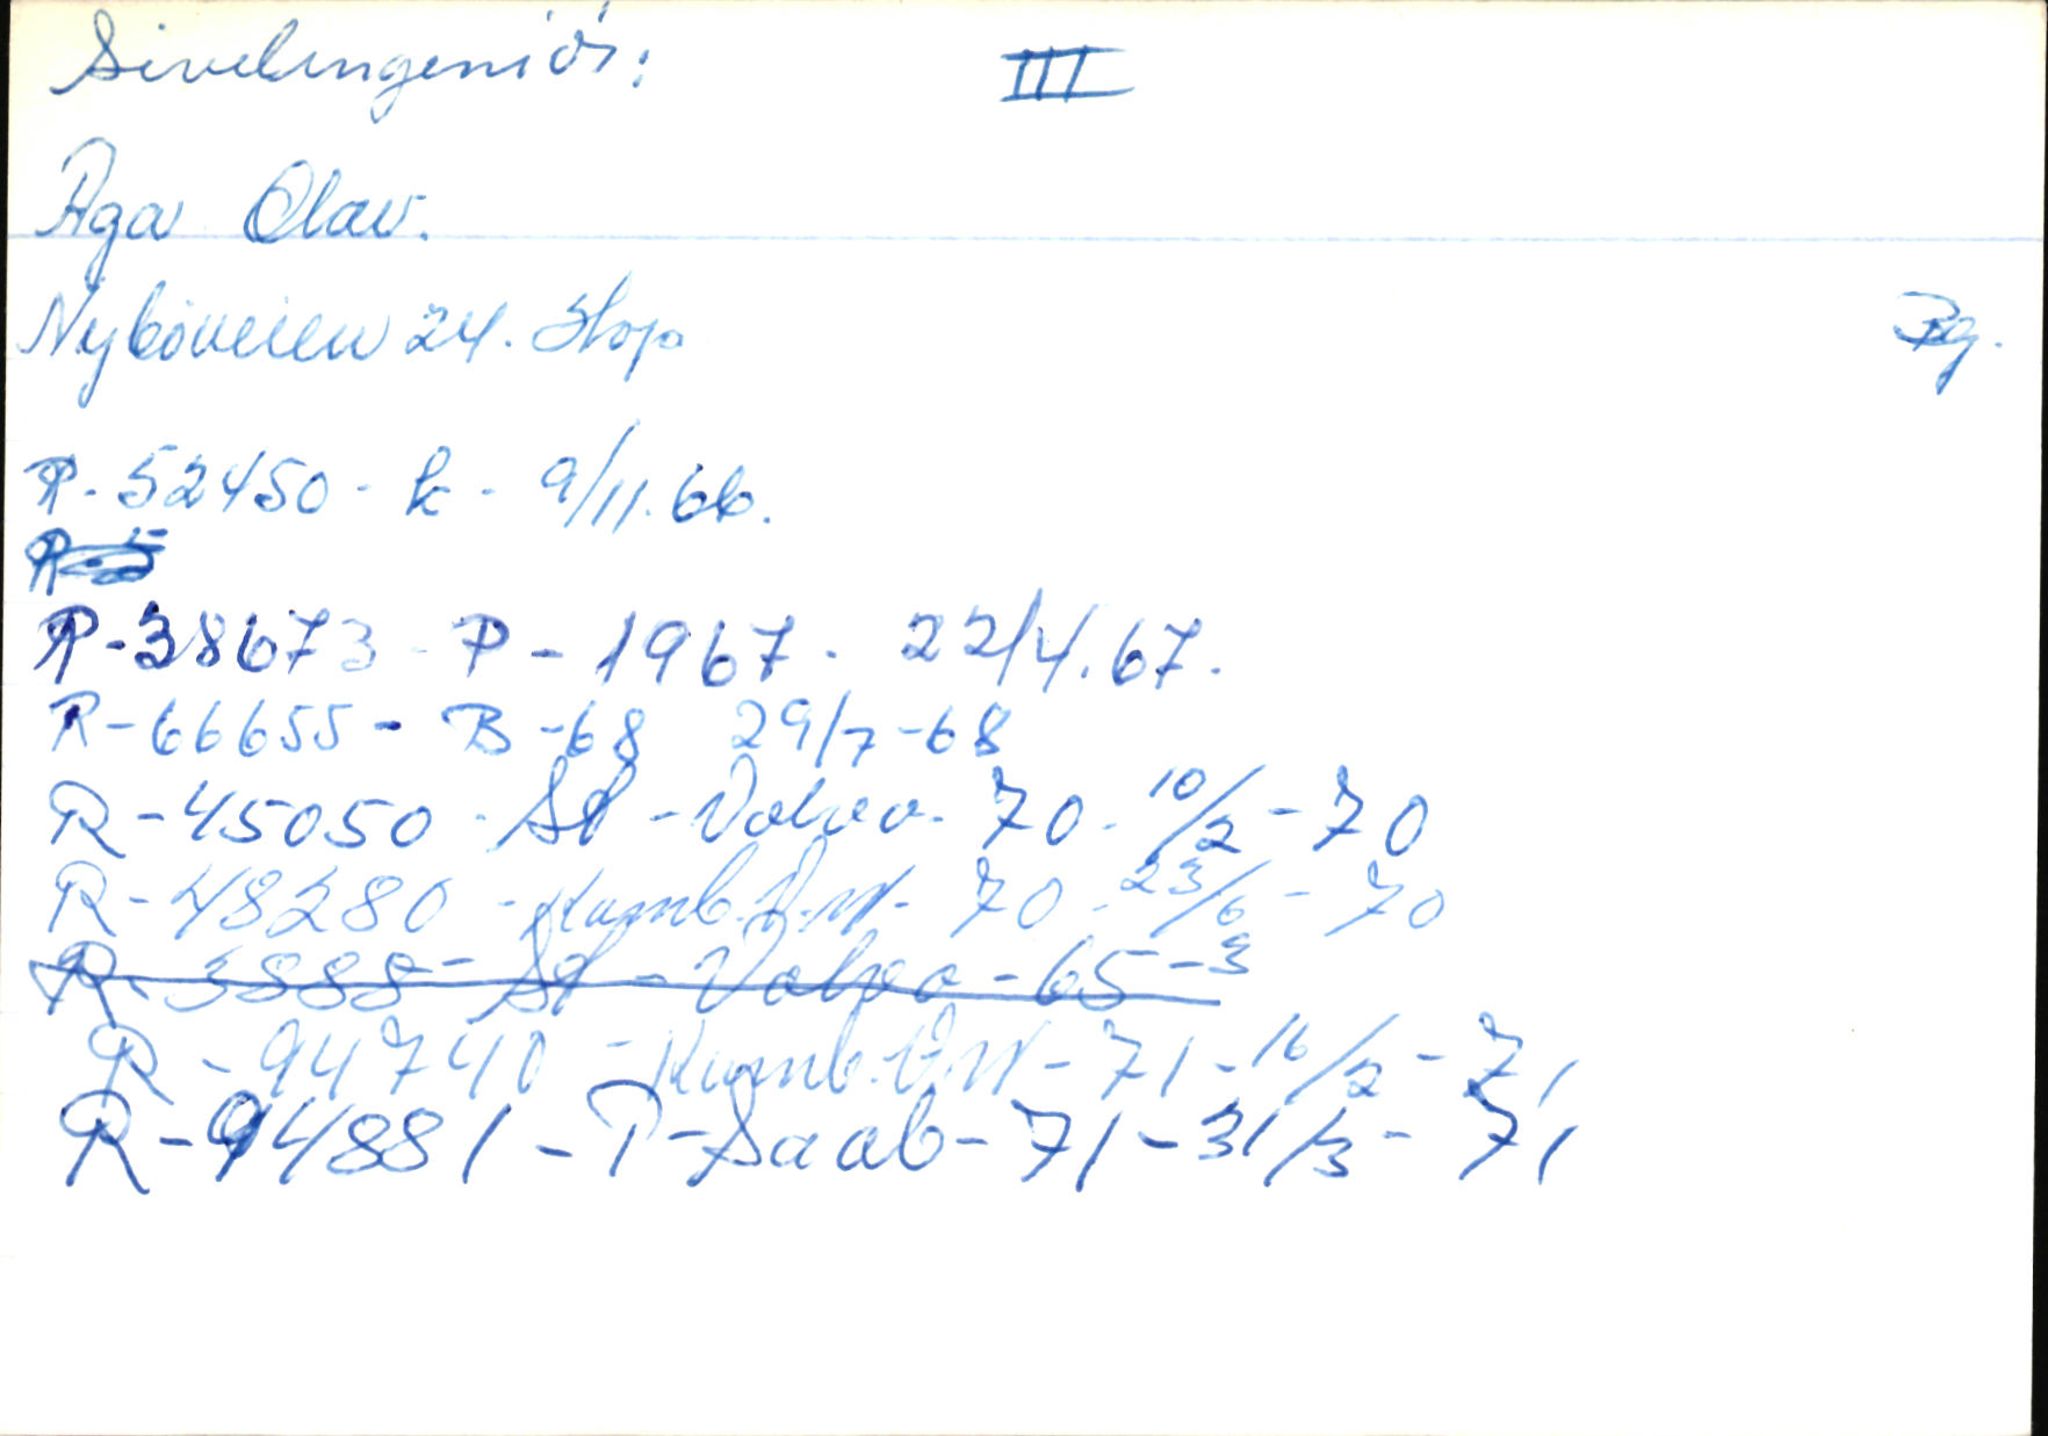 Sivelingeniör: III
Aga Olav.
Nyböveien 24. Hop
R-52450 - k - 9/11.66.
R-38673 - P - 1967. 22/4.67.
R-66655 - B -68 29/7-68
R-45050 - St - Volvo. 70. 10/2-70
R-48280 - Komb. V.W. 70. 23/6-70
R-3888 - St - Volvo - 65 - 3
R-94740 - Komb. V.W - 71 - 16/2 - 71
R-94881 - P - Saab - 71 - 31/3 - 71